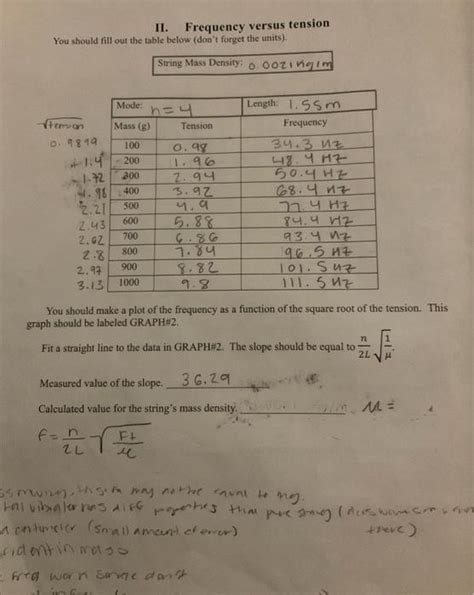 II. Frequency versus tension
You should fill out the table below (don't forget the units).
String Mass Density: 0.0021 kg/m
Mode: n=4 Length: 1.55m
√tension Mass (g) Tension Frequency
0.9899 100 0.98 34.3 Hz
1.4 200 1.96 48.4 Hz
1.72 300 2.94 50.4 Hz
1.98 400 3.92 68.4 Hz
2.21 500 4.9 77.4 Hz
2.43 600 5.88 84.4 Hz
2.62 700 6.86 93.4 Hz
2.8 800 7.84 96.5 Hz
2.97 900 8.82 101.5 Hz
3.13 1000 9.8 111.5 Hz
You should make a plot of the frequency as a function of the square root of the tension. This
graph should be labeled GRAPH#2.
Fit a straight line to the data in GRAPH#2. The slope should be equal to n/2L √1/μ.
Measured value of the slope. 36.29
Calculated value for the string's mass density. μ =
F = n/2L √Ft/μ
may not be equal to mg.
diff properties than pure string
a centimeter (small amount of error) there)
in mass